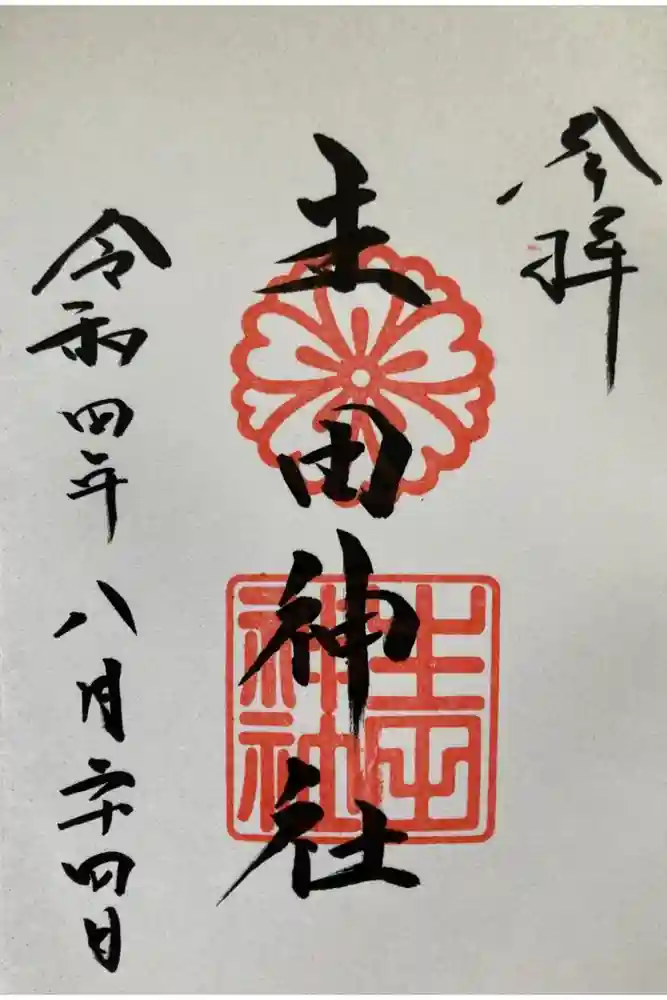 参拝
生田神社
令和四年八月二十四日
生田
神社